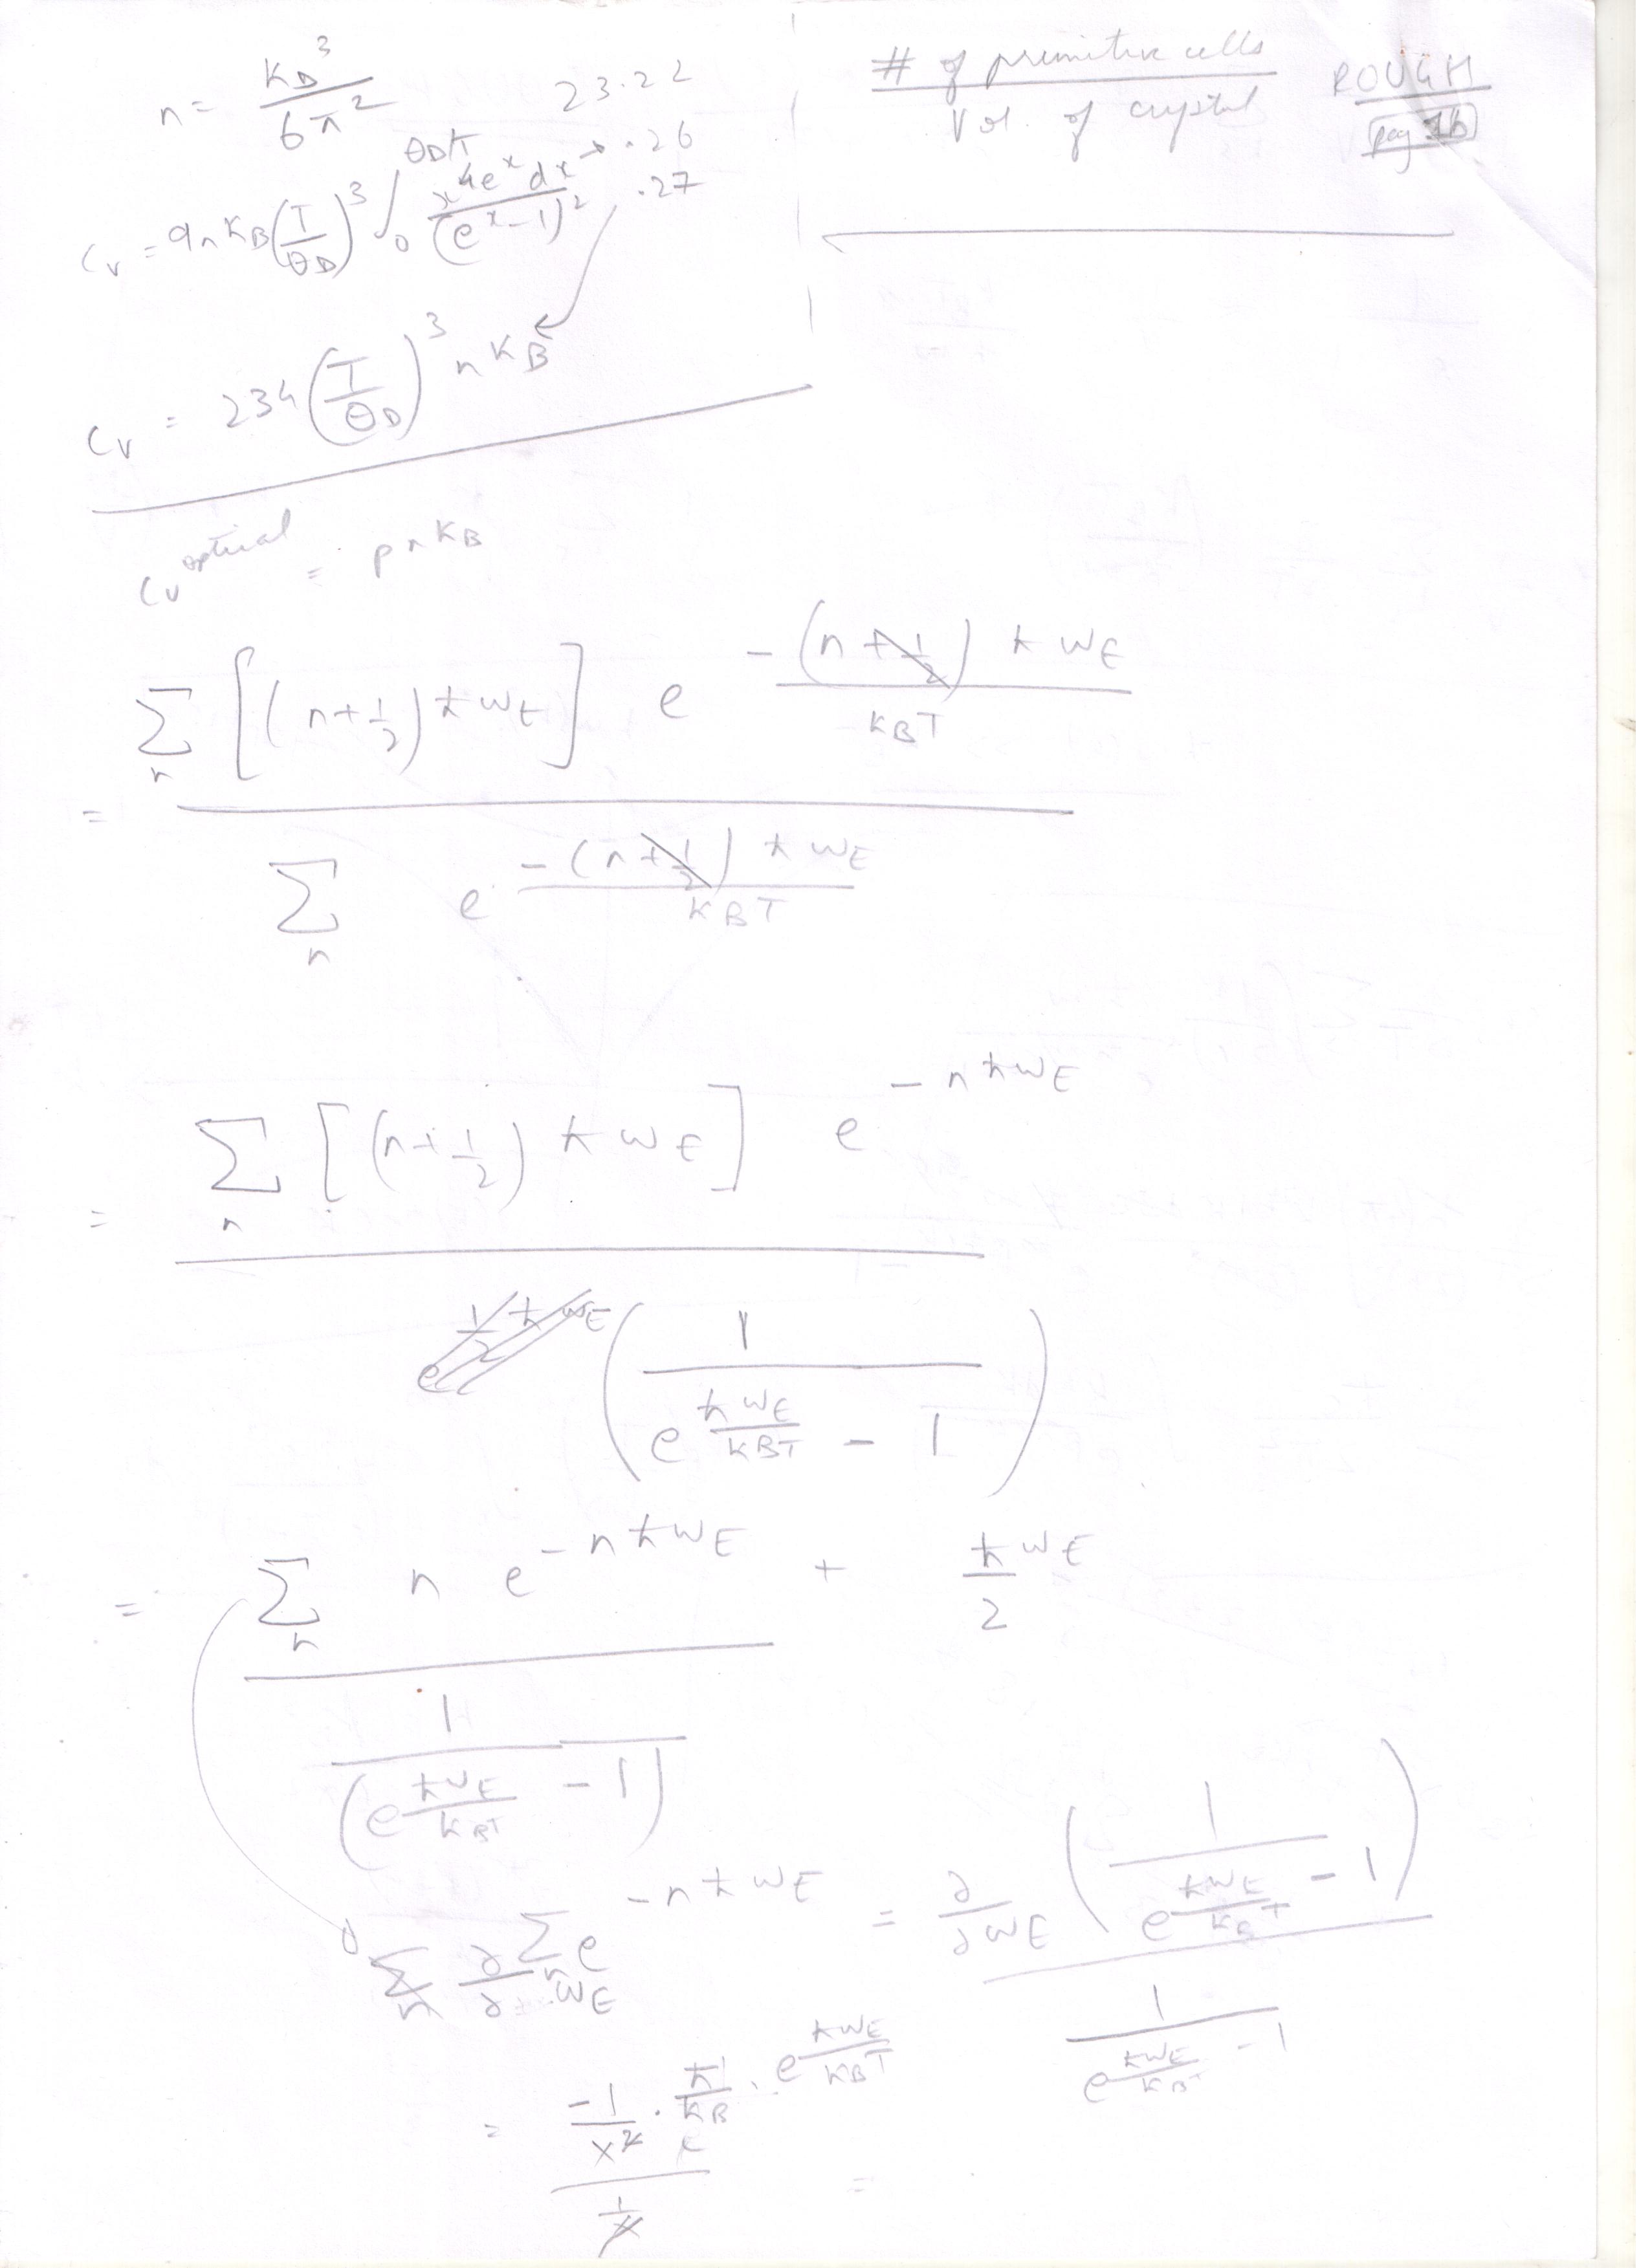 n = K_D^3 / 6π^2
23.22
C_v = 9nK_B (T/θ_D)^3 ∫_0^{θ_D/T} x^4 e^x dx / (e^x - 1)^2 → .26
.27
C_v = 234 (T/θ_D)^3 n K_B
# of primitive cells / Vol. of crystal
ROUGH
pag 16
C_v^optical = p n K_B
= Σ_n [(n + 1/2) ħω_E] e^{-(n + 1/2) ħω_E / K_BT} / Σ_n e^{-(n + 1/2) ħω_E / K_BT}
= Σ_n [(n + 1/2) ħω_E] e^{-nħω_E} / e^{1/2 ħω_E} (1 / (e^{ħω_E / K_BT} - 1))
= Σ_n n e^{-nħω_E} / (1 / (e^{ħω_E / K_BT} - 1)) + ħω_E / 2
Σ_n ∂/∂ω_E Σ_n e^{-nħω_E} = ∂/∂ω_E (1 / (e^{ħω_E / K_BT} - 1)) / (1 / (e^{ħω_E / K_BT} - 1))
= -1/x^2 · ħ/K_B · e^{ħω_E / K_BT} / (1/x) =